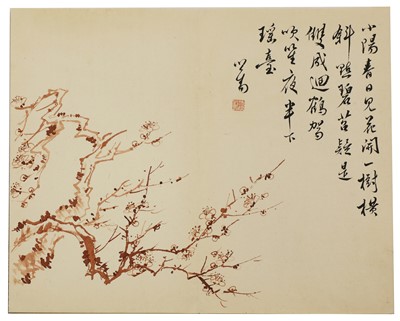 小陽春日見花開一樹橫
斜點碧苔疑是
雙成迴鶴駕
吹笙夜半下
瑤臺
心畬